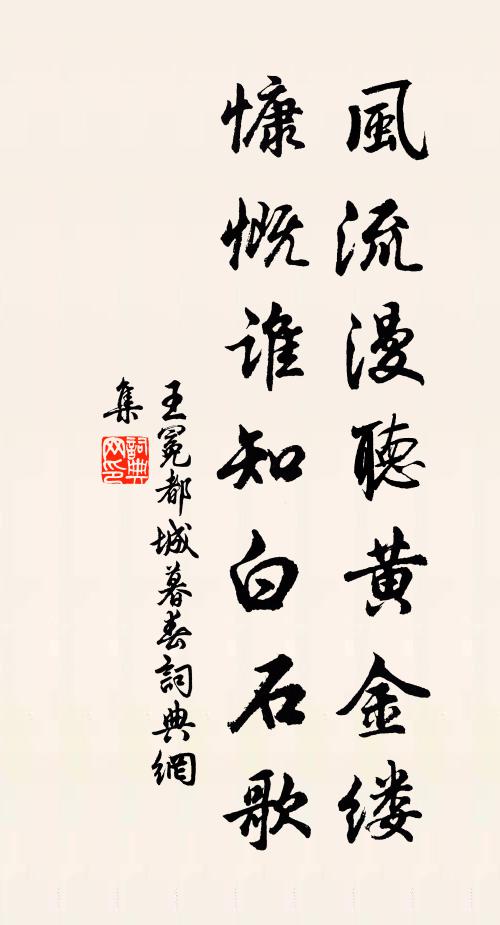 風流漫聽黄金缕
慷慨谁知白石歌
王冕都城暮春詞典網
集
詞典網印